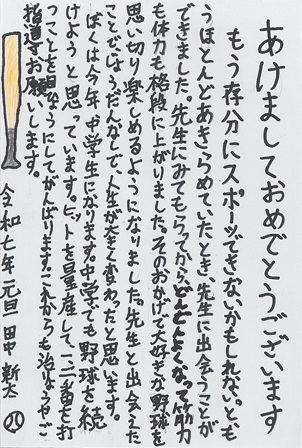 あけましておめでとうございます
もう存分にスポーツできないかもしれない。とも
うほとんどあきらめていたとき、先生に出会うことが
できました。先生にみてもらってから、どんどんよくなって筋力
も体力も格段に上がりました。そのおかげで大好きな野球を
思い切り楽しめるようになりました。先生と出会えた
ことでじょうだんなしで、人生が大きく変わったと思います。
ぼくは今年中学生になります。中学でも野球を続
けようと思っています。ヒットを量産して、二番を打
つことをにしてがんばります!これからも治りょうやご
指導お願いします。
令和七年元旦 田中新太